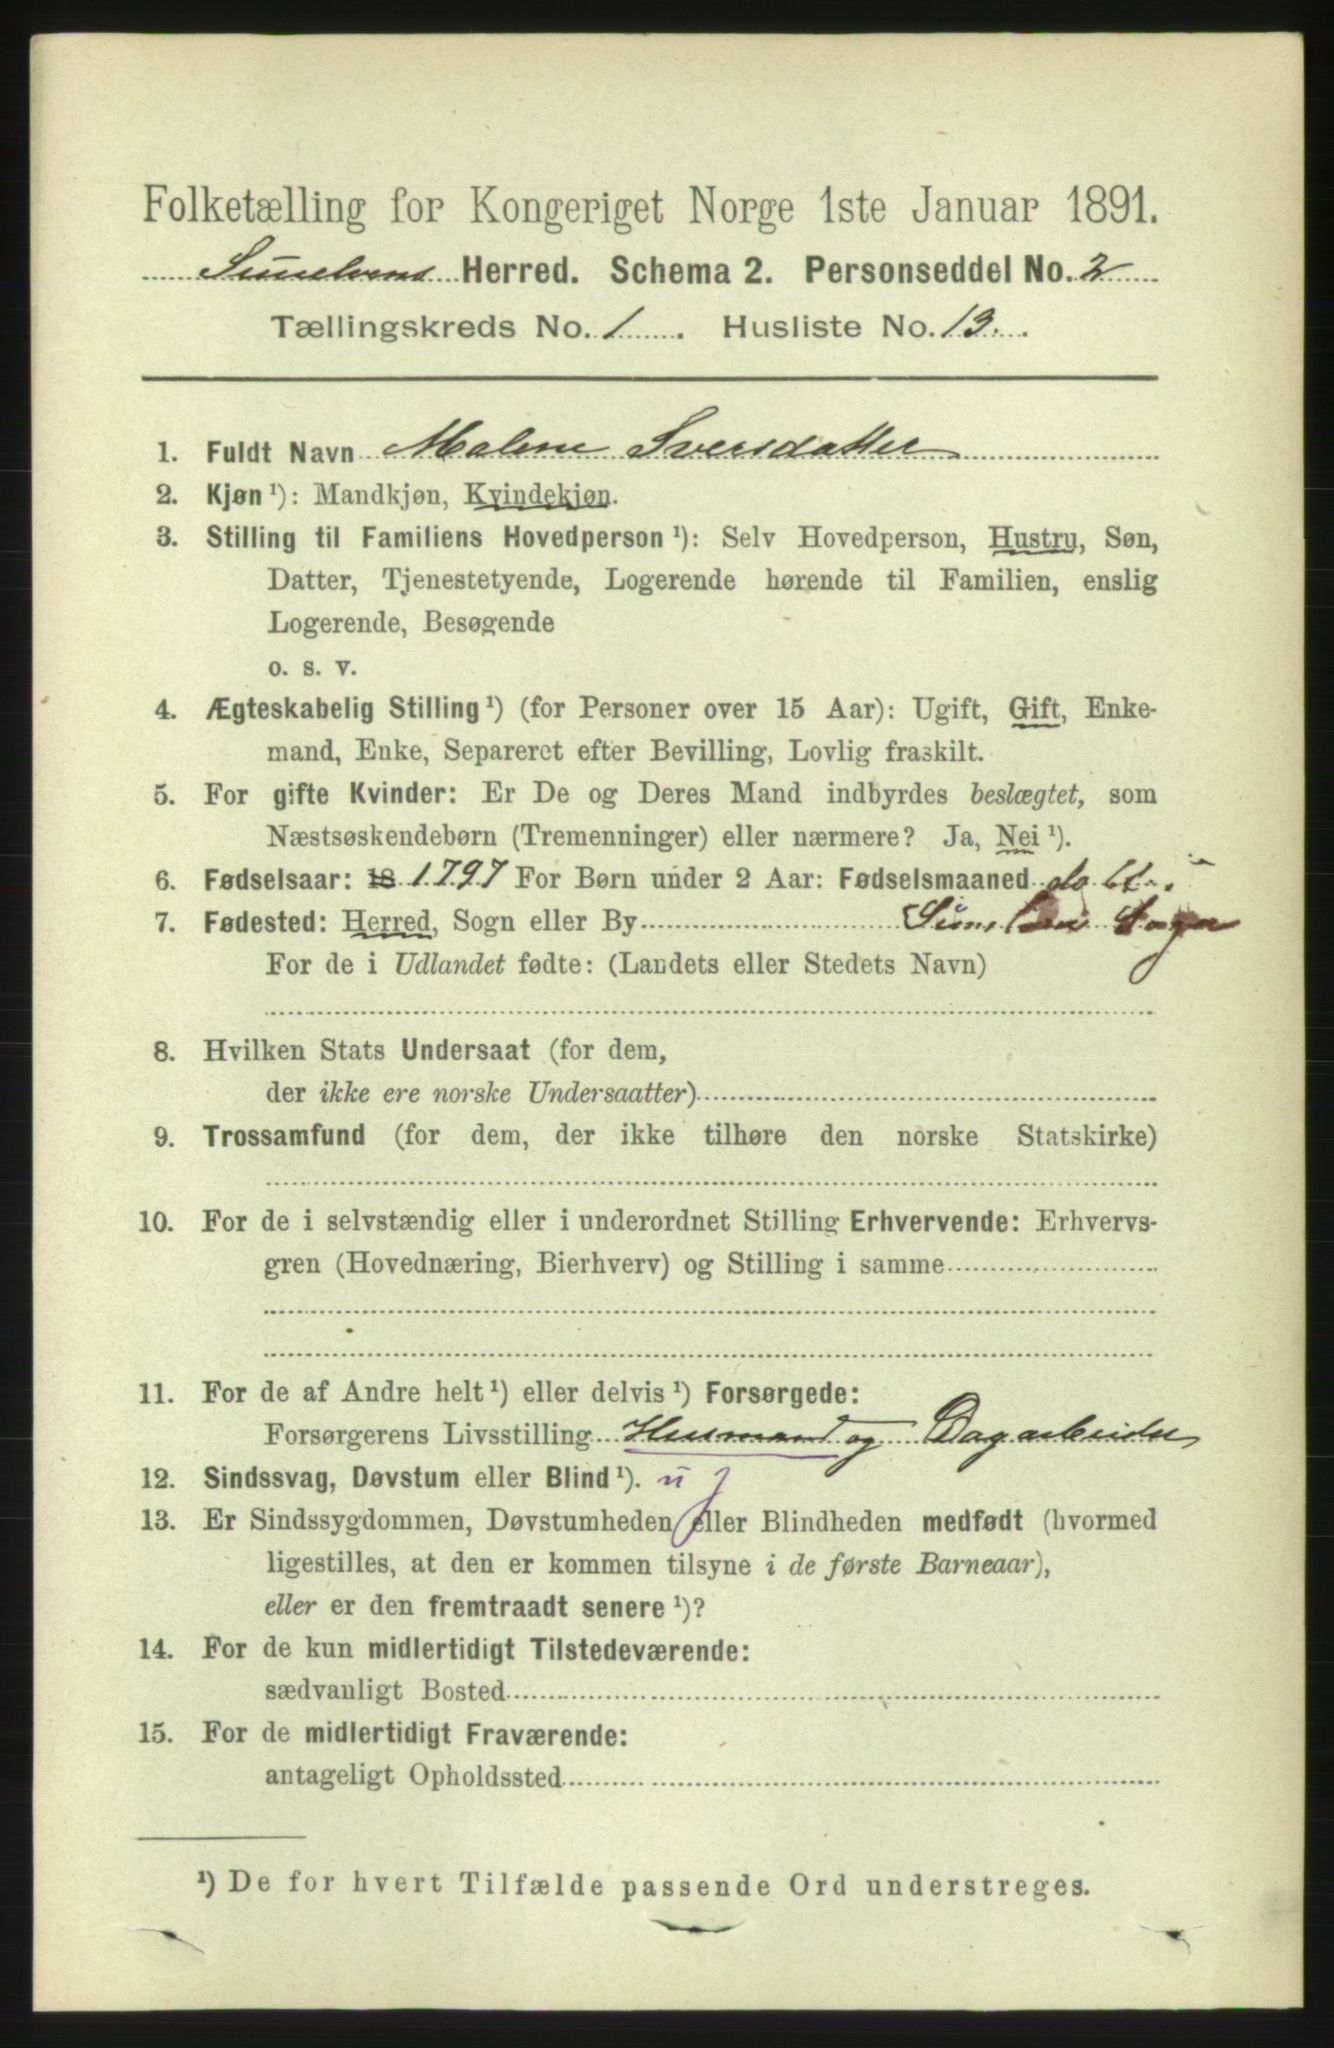 Folketælling for Kongeriget Norge 1ste Januar 1891.
Sunelvens Herred. Schema 2. Personseddel No. 2
Tællingskreds No. 1. Husliste No. 13.
1. Fuldt Navn Malene Iversdatter
2. Kjøn ¹): Mandkjøn, Kvindekjøn.
3. Stilling til Familiens Hovedperson ¹): Selv Hovedperson, Hustru, Søn,
Datter, Tjenestetyende, Logerende hørende til Familien, enslig
Logerende, Besøgende
o. s. v.
4. Ægteskabelig Stilling ¹) (for Personer over 15 Aar): Ugift, Gift, Enke-
mand, Enke, Separeret efter Bevilling, Lovlig fraskilt.
5. For gifte Kvinder: Er De og Deres Mand indbyrdes beslægtet, som
Næstsøskendebørn (Tremenninger) eller nærmere? Ja, Nei ¹).
6. Fødselsaar: 18 1797 For Børn under 2 Aar: Fødselsmaaned
7. Fødested: Herred, Sogn eller By Sogn
For de i Udlandet fødte: (Landets eller Stedets Navn)
8. Hvilken Stats Undersaat (for dem,
der ikke ere norske Undersaatter)
9. Trossamfund (for dem, der ikke tilhøre den norske Statskirke)
10. For de i selvstændig eller i underordnet Stilling Erhvervende: Erhvervs-
gren (Hovednæring, Bierhverv) og Stilling i samme
11. For de af Andre helt ¹) eller delvis ¹) Forsørgede:
Forsørgerens Livsstilling Husmand og Dagarbeider
12. Sindssvag, Døvstum eller Blind ¹).
13. Er Sindssygdommen, Døvstumheden eller Blindheden medfødt (hvormed
ligestilles, at den er kommen tilsyne i de første Barneaar),
eller er den fremtraadt senere ¹)?
14. For de kun midlertidigt Tilstedeværende:
sædvanligt Bosted
15. For de midlertidigt Fraværende:
antageligt Opholdssted
¹) De for hvert Tilfælde passende Ord understreges.